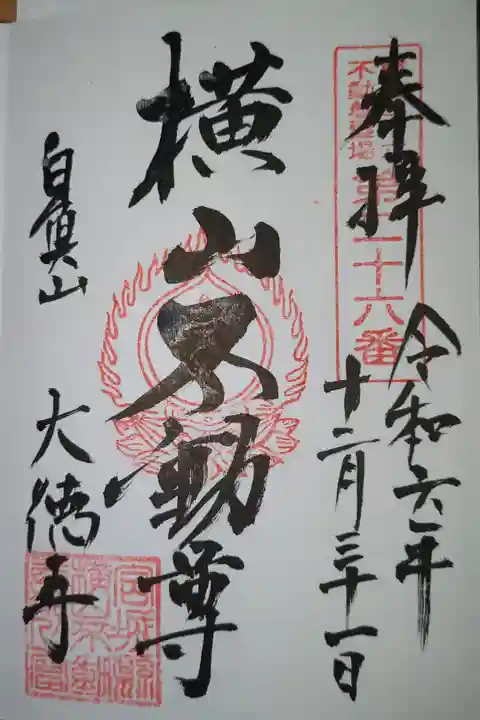 奉拝
不動尊霊場
第二十六番
令和六年
十二月三十一日
横山不動尊
白魚山
大徳寺
宮城縣
横山不動